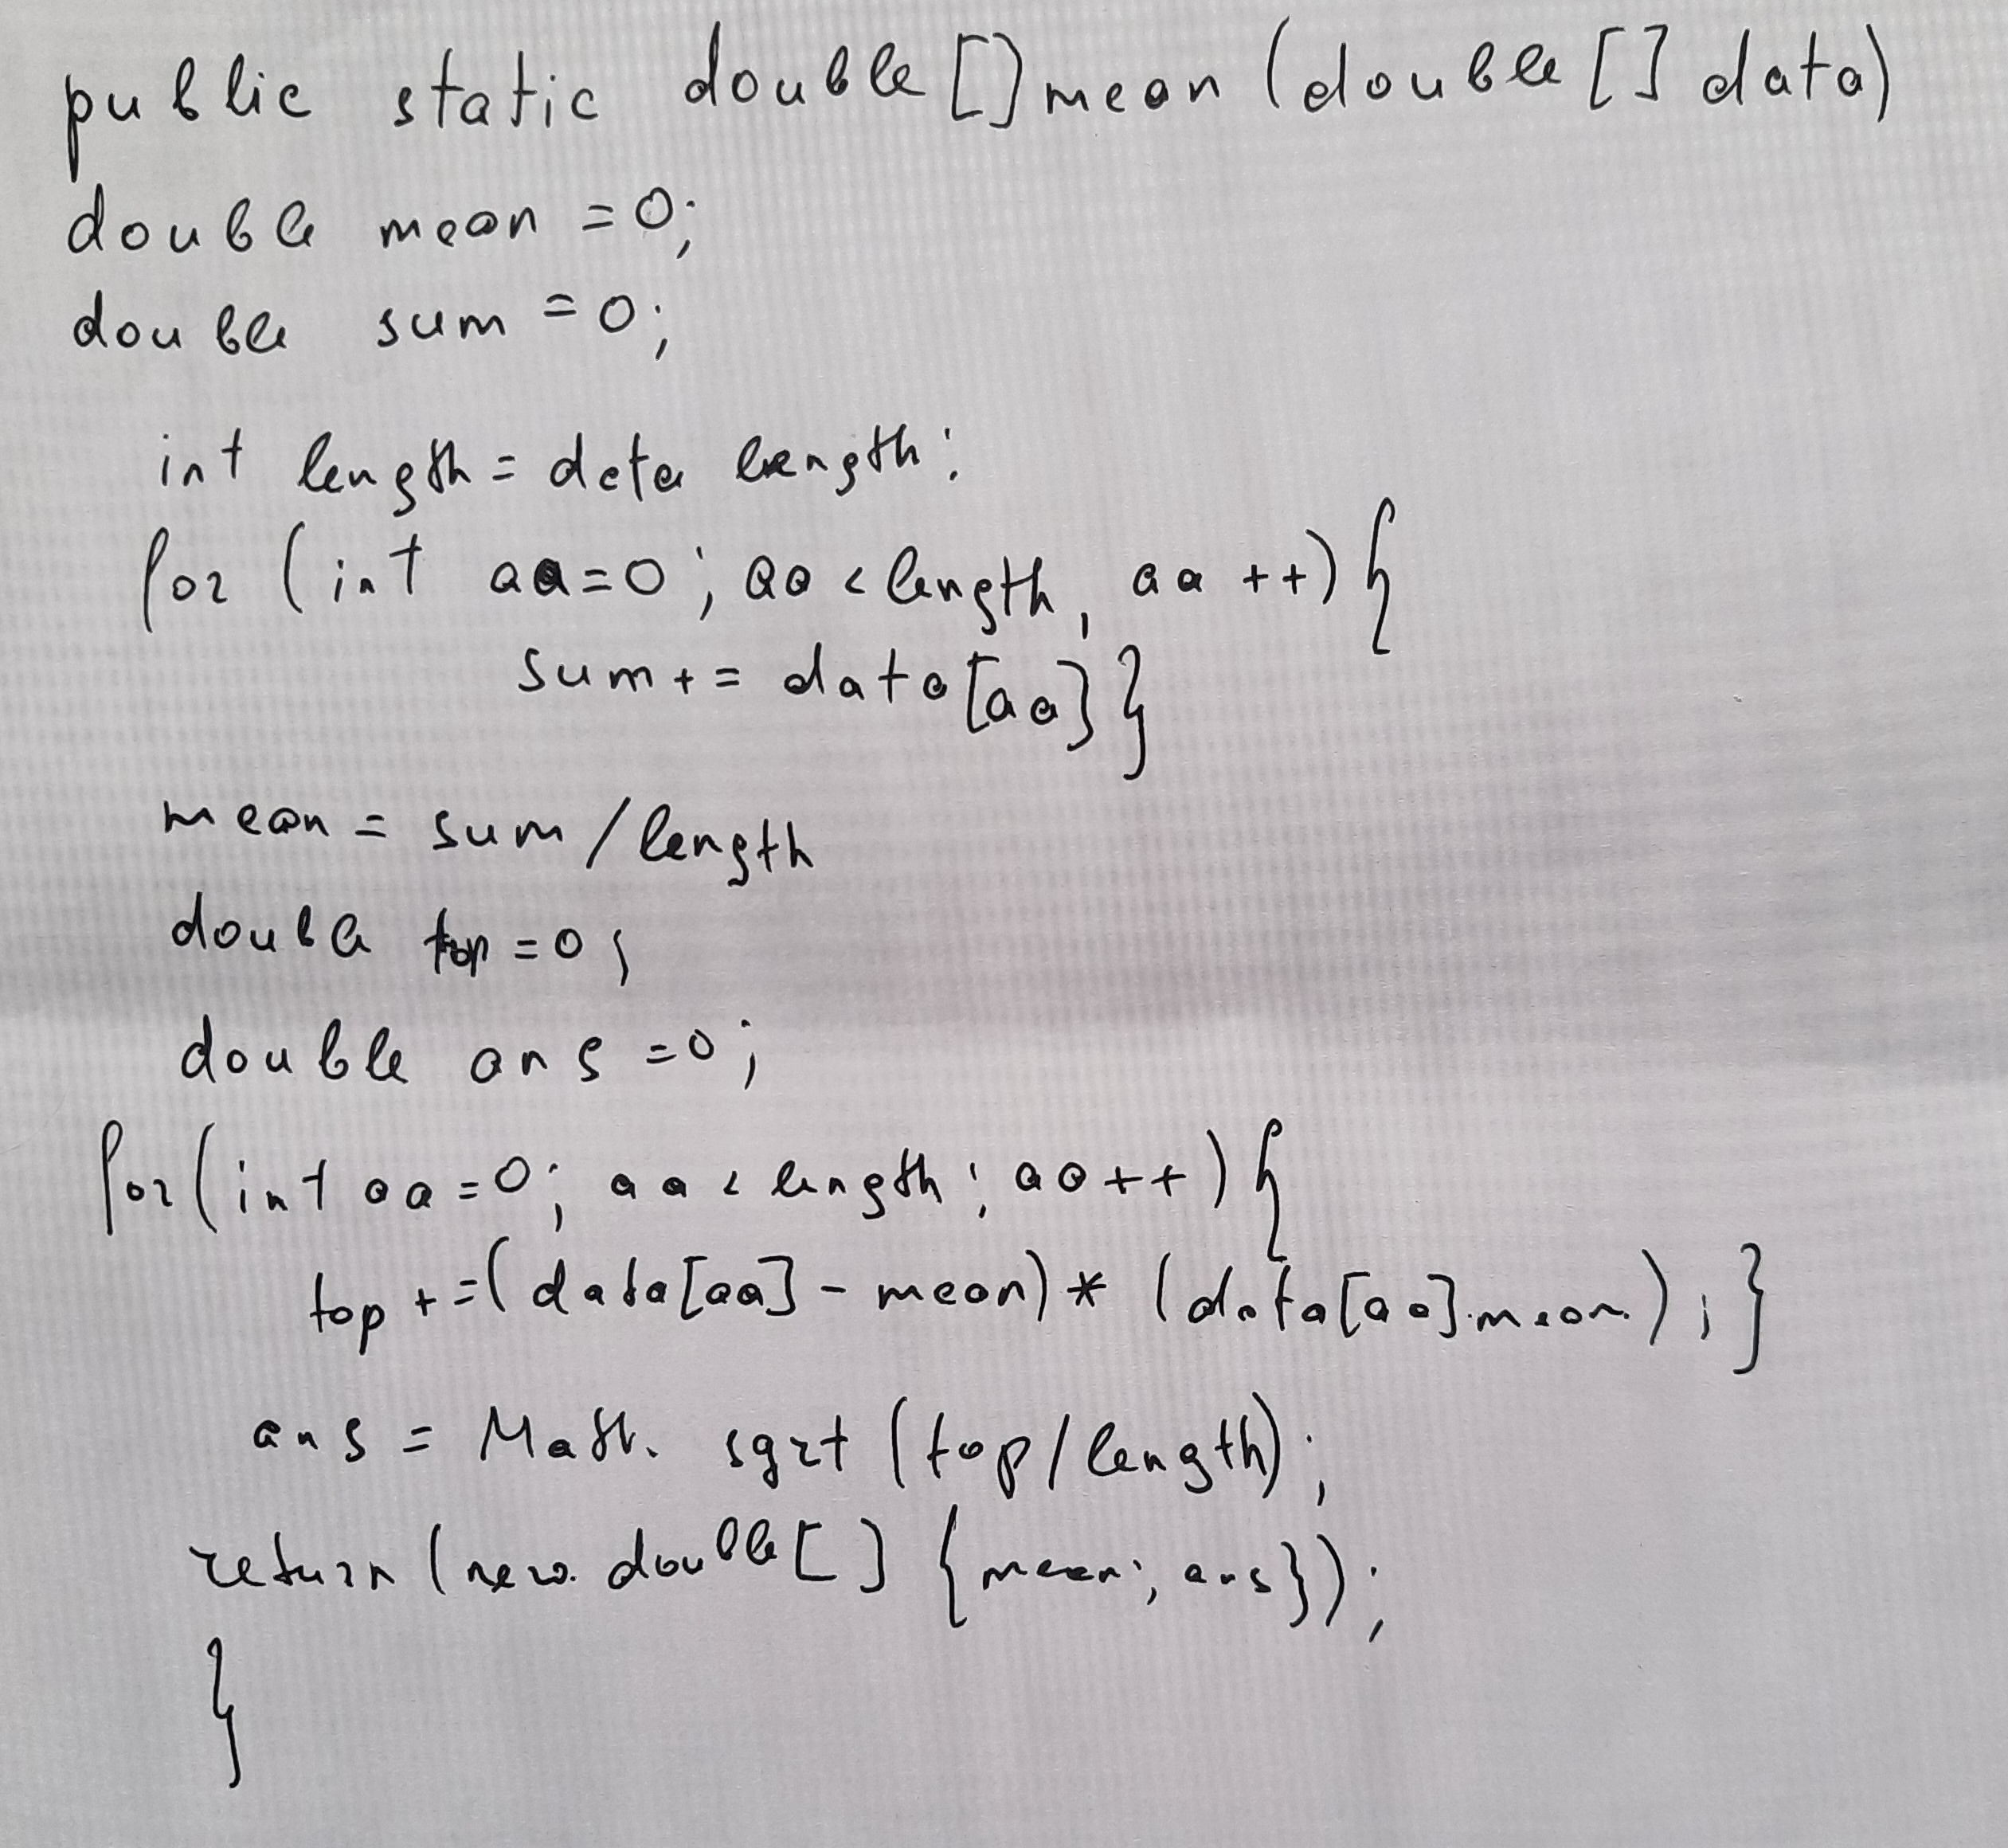 public static double [] mean (double [] data)
double mean = 0;
double sum = 0;
int length = data length;
for (int aa=0; aa < length, aa ++) {
sum += data [aa] }
mean = sum / length
double top = 0;
double ans = 0;
for (int aa = 0; aa < length; aa++) {
top += (data[aa] - mean) * (data[aa].mean); }
ans = Math. sqrt (top / length);
return (new. double [] {mean; ans});
}